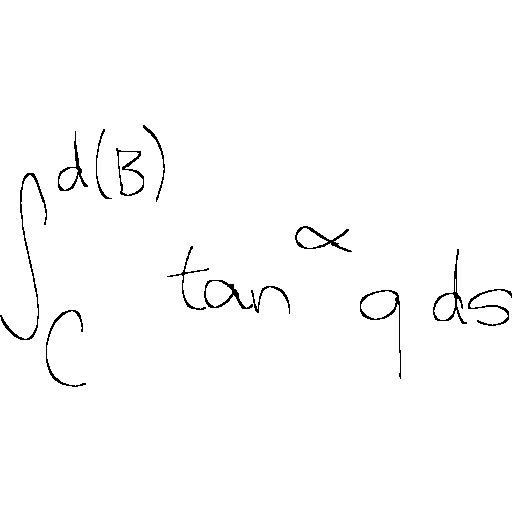 \int_{C}^{d(B)} \tan^{\alpha} q ds